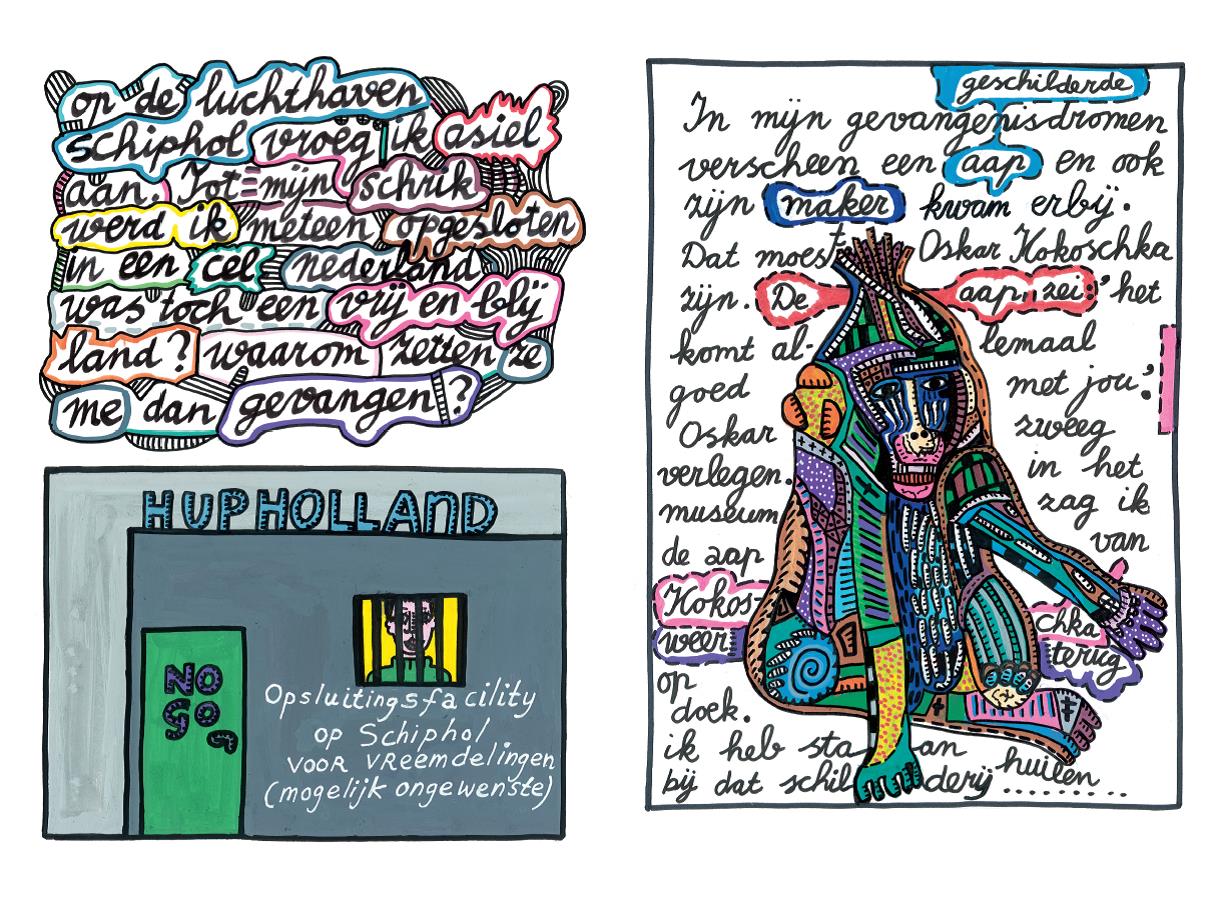 op de luchthaven
schiphol vroeg ik asiel
aan. Tot mijn schrik
werd ik meteen opgesloten
in een cel nederland
was toch een vrij en blij
land? waarom zetten ze
me dan gevangen?
HUP HOLLAND
NO
GO
Opsluitingsfacility
op Schiphol
voor vreemdelingen
(mogelijk ongewenste)
geschilderde
In mijn gevangenisdromen
verscheen een aap en ook
zijn maker kwam erbij.
Dat moest Oskar Kokoschka
zijn. De aap zei: 'het
komt al- lemaal
goed met jou'.
Oskar zweeg
verlegen. in het
museum zag ik
de aap van
Kokos- chka
weer terug
op
doek.
ik heb sta an huilen
bij dat schil derij ........